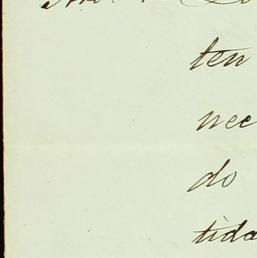 ten
nec
do
tida